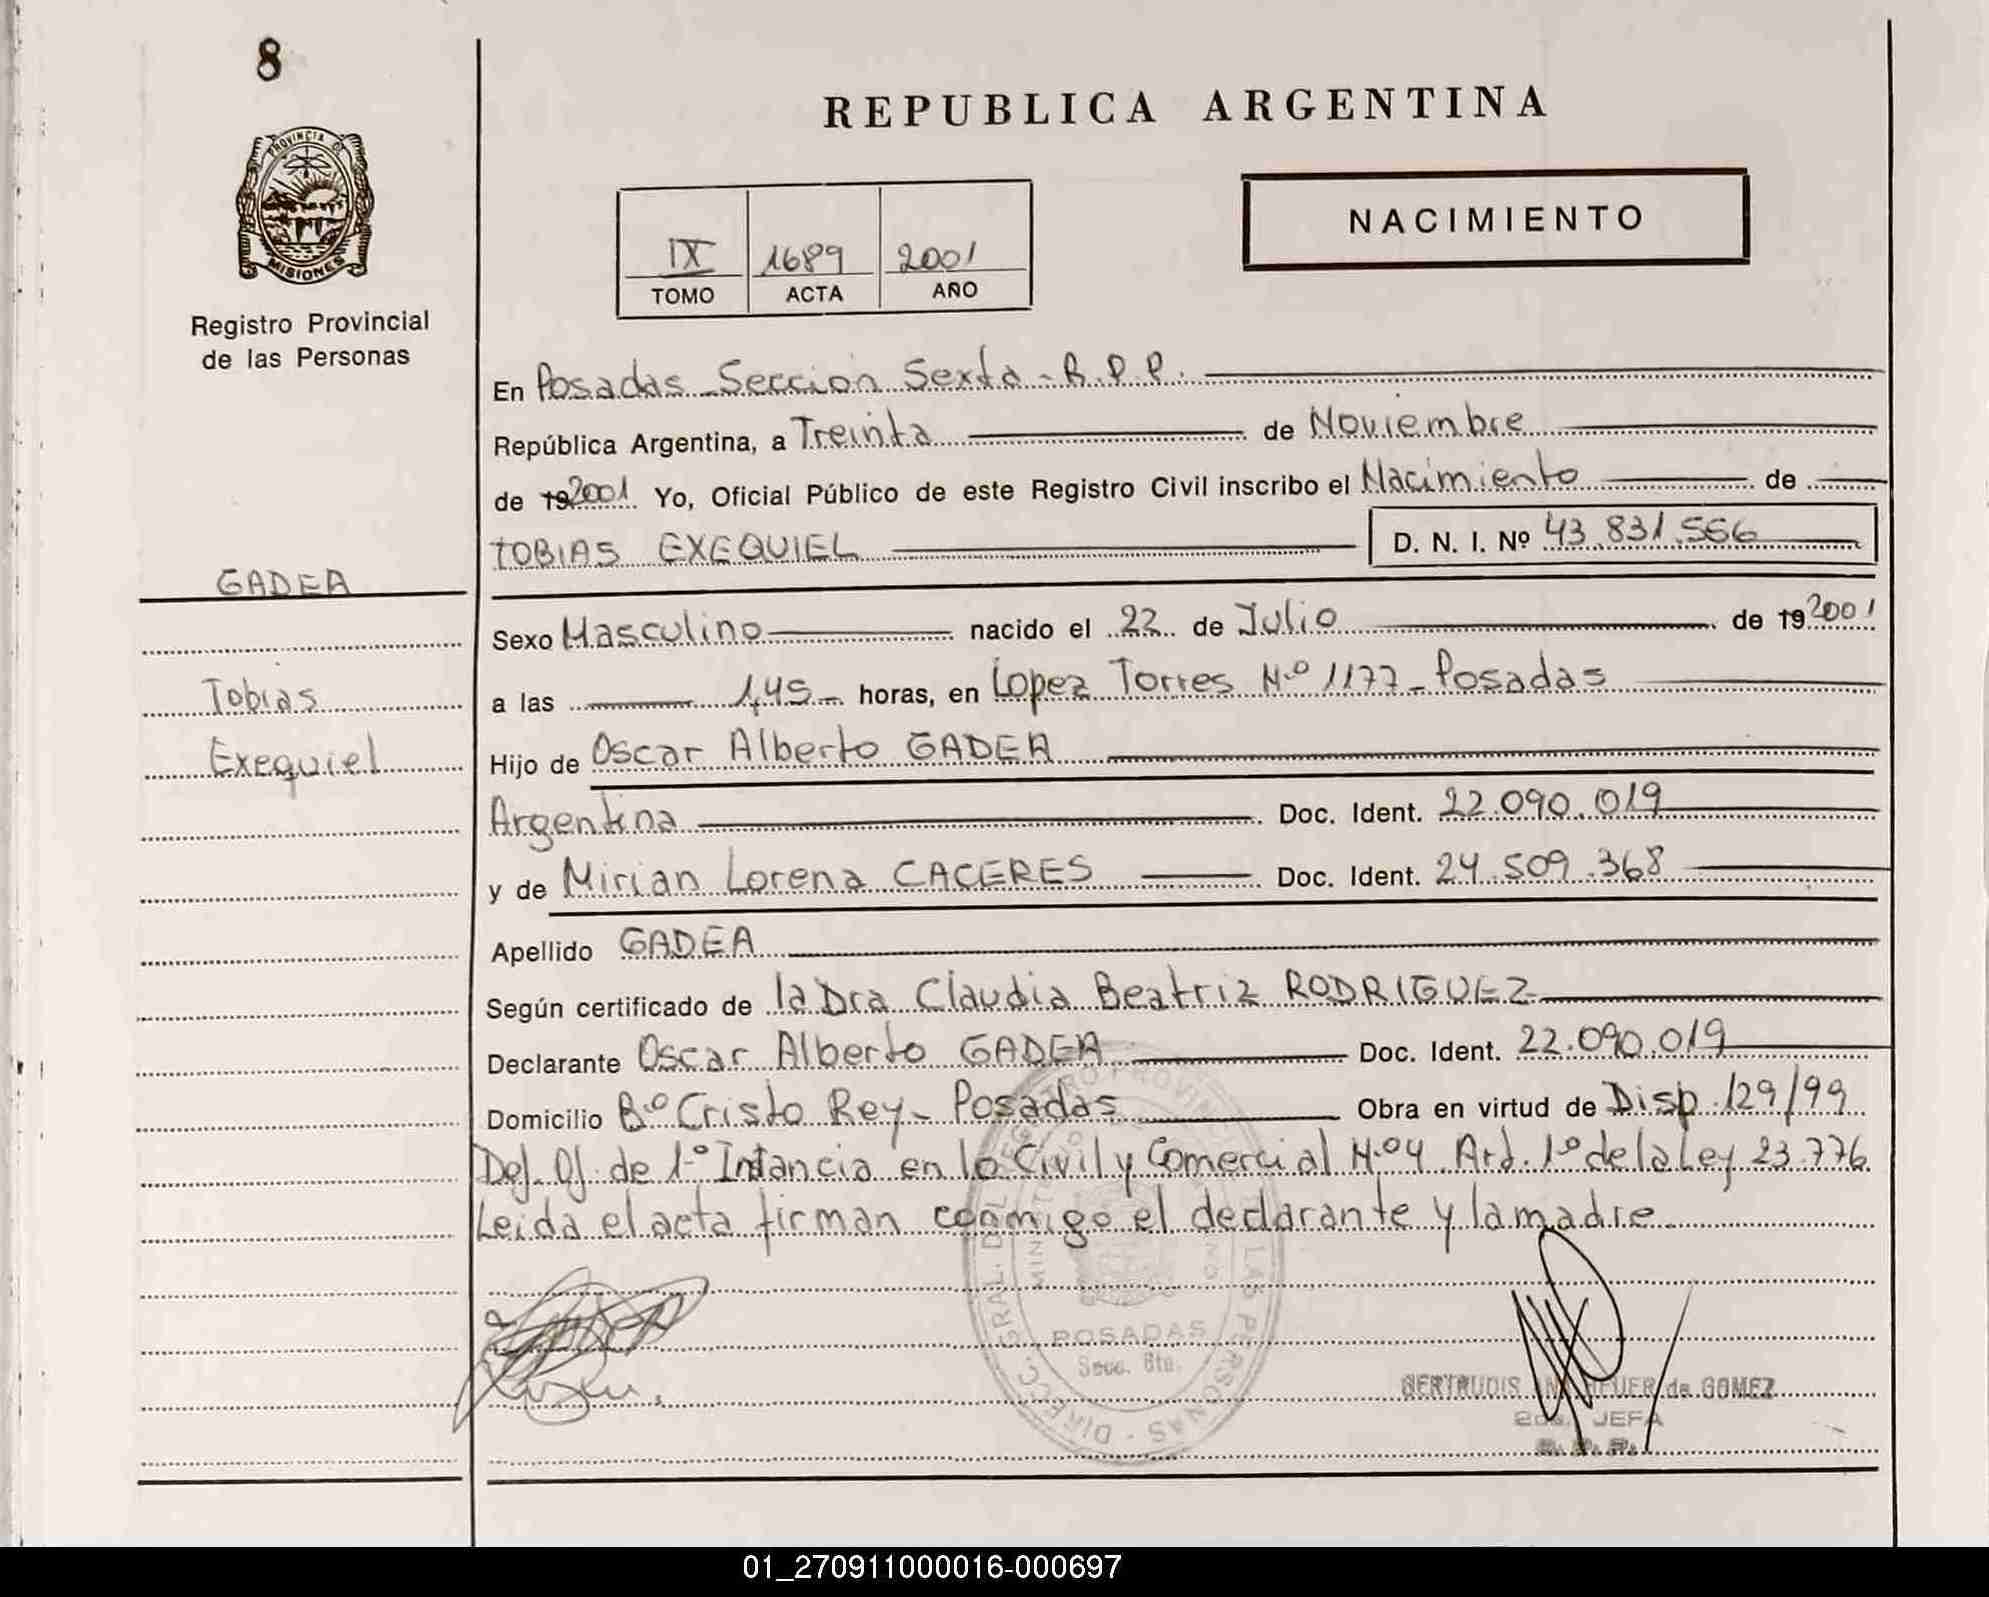 8
PROVINCIA DE
MISIONES
Registro Provincial
de las Personas
GADEA
Tobias
Exequiel
REPUBLICA ARGENTINA
IX 1689 2001
TOMO ACTA AÑO
NACIMIENTO
En Posadas - Sección Sexta - R.P.P.
República Argentina, a Treinta de Noviembre
de 19 2001 Yo, Oficial Público de este Registro Civil inscribo el Nacimiento de
TOBIAS EXEQUIEL D. N. I. Nº 43.831.566
Sexo Masculino nacido el 22 de Julio de 19 2001
a las 1,45 horas, en Lopez Torres N.º 1177 - Posadas
Hijo de Oscar Alberto GADEA
Argentina Doc. Ident. 22.090.019
y de Mirian Lorena CACERES Doc. Ident. 24.509.368
Apellido GADEA
Según certificado de la Dra Claudia Beatriz RODRIGUEZ
Declarante Oscar Alberto GADEA Doc. Ident. 22.090.019
Domicilio B.º Cristo Rey - Posadas Obra en virtud de Disp. 129/99
Def. Of. de 1.º Instancia en lo Civil y Comercial N.º 4 Art. 1º de la Ley 23.776
Leida el acta firman conmigo el declarante y la madre
POSADAS
Secc. 6ta.
GERTRUDIS de GOMEZ
2da. JEFA
R. P. P.
01_270911000016-000697